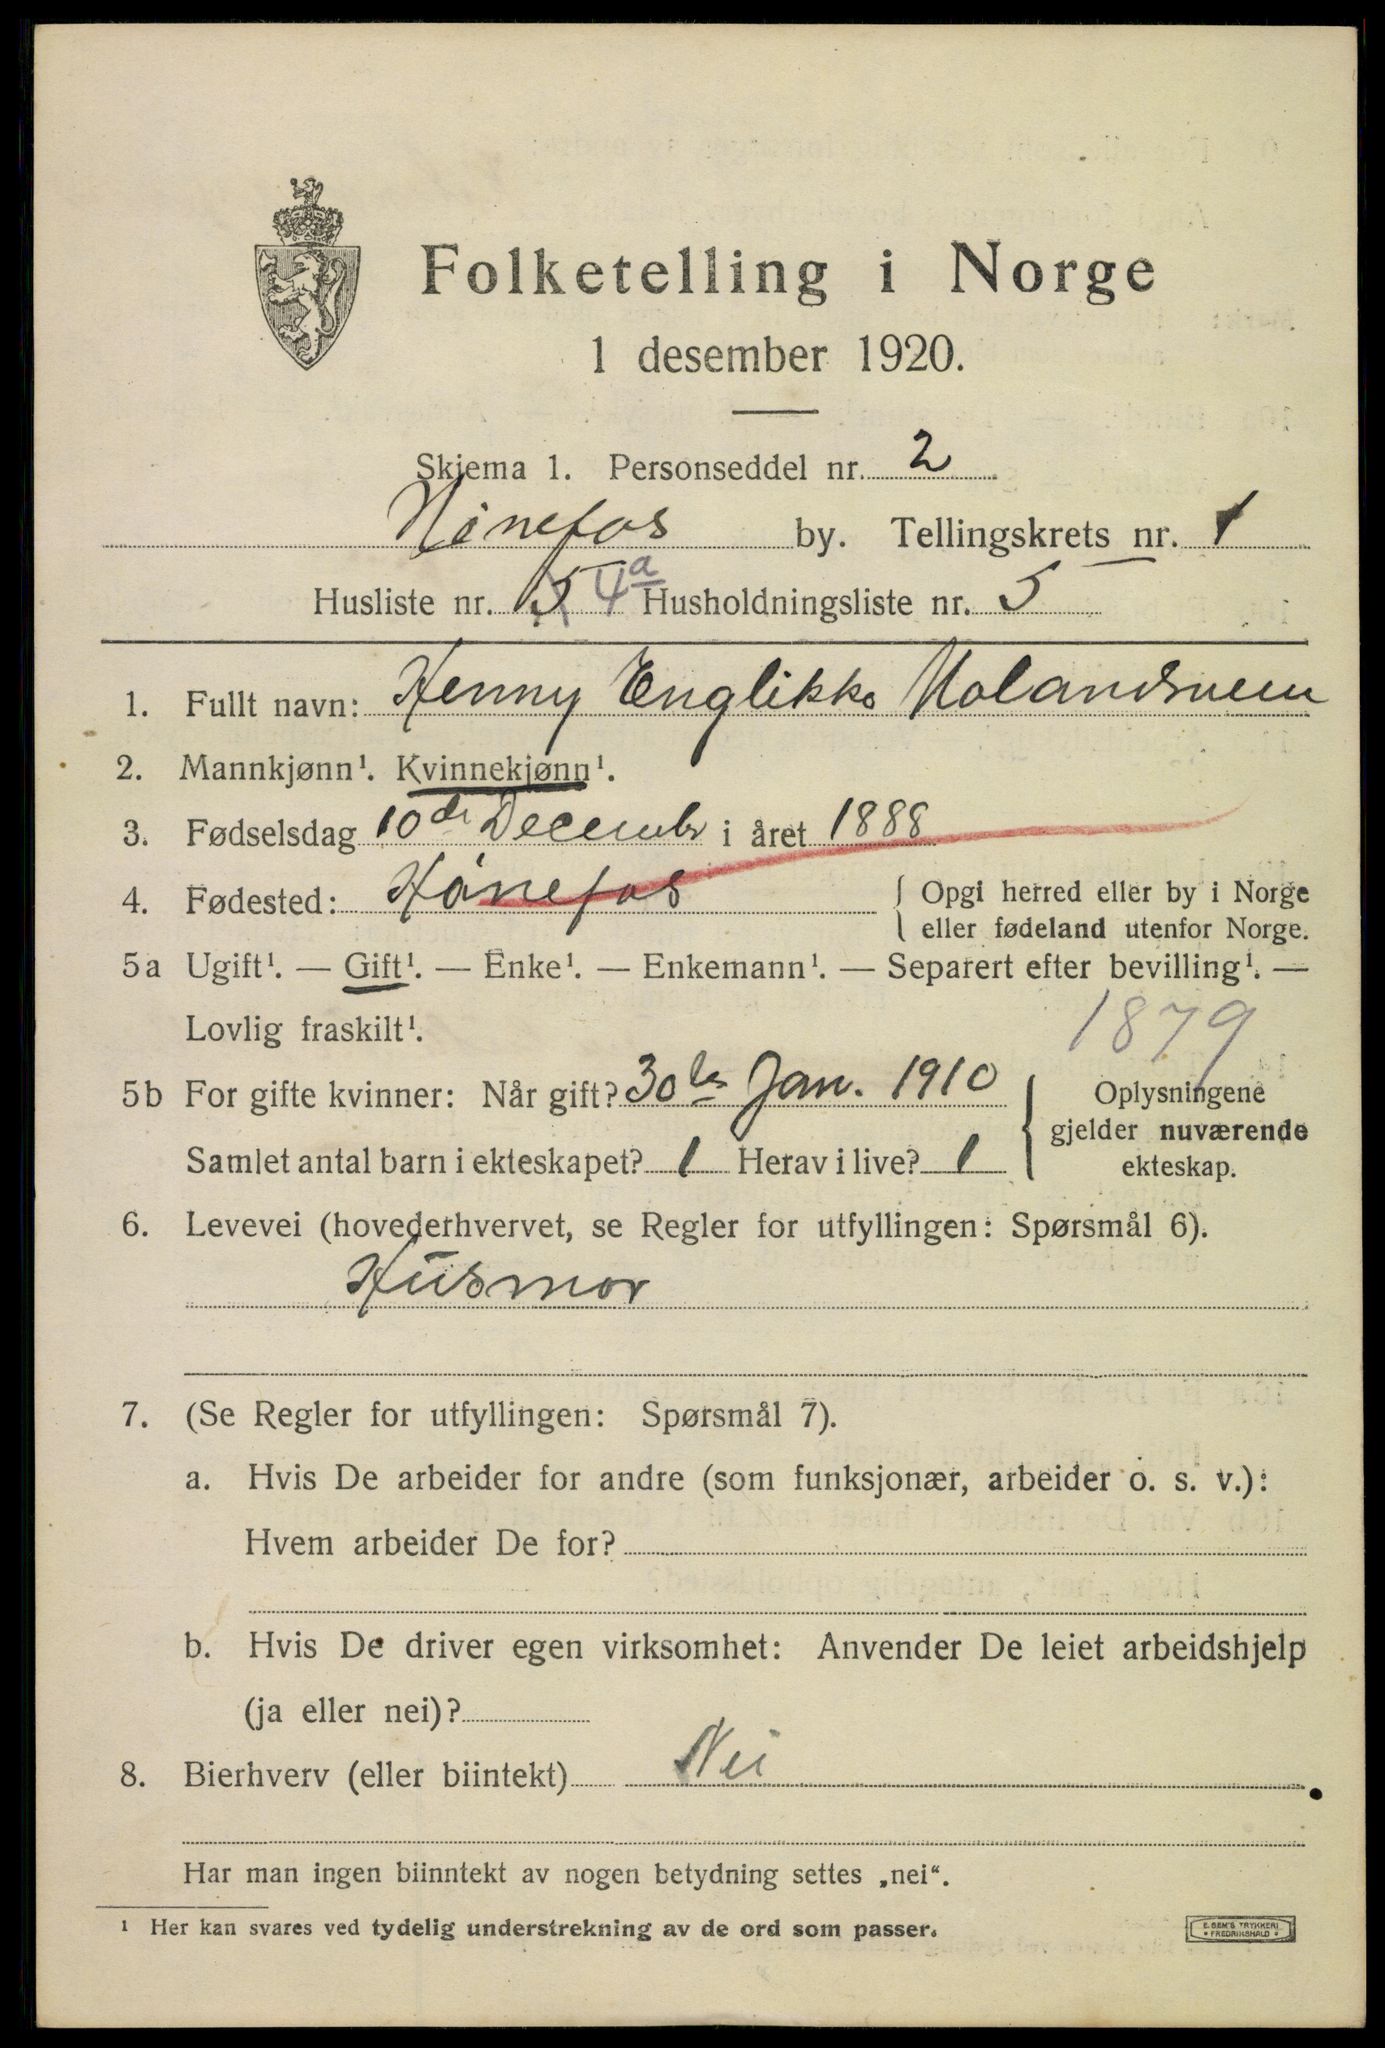 Folketelling i Norge
1 desember 1920.
Skjema 1. Personseddel nr. 2
Hønefos by. Tellingskrets nr. 1
Husliste nr. 5 4a Husholdningsliste nr. 5
1. Fullt navn: Henny Englikke
2. Mannkjønn¹. Kvinnekjønn¹.
3. Fødselsdag 10de December i året 1888
4. Fødested: Hønefos { Opgi herred eller by i Norge
eller fødeland utenfor Norge.
5a Ugift¹. — Gift¹. — Enke¹. — Enkemann¹. — Separert efter bevilling¹. —
Lovlig fraskilt¹.
1879
5b For gifte kvinner: Når gift? 30te Jan. 1910 { Oplysningene
gjelder nuværende
Samlet antal barn i ekteskapet? 1 Herav i live? 1 ekteskap.
6. Levevei (hovederhvervet, se Regler for utfyllingen: Spørsmål 6).
Husmor
7. (Se Regler for utfyllingen: Spørsmål 7).
a. Hvis De arbeider for andre (som funksjonær, arbeider o. s. v.):
Hvem arbeider De for?
b. Hvis De driver egen virksomhet: Anvender De leiet arbeidshjelp
(ja eller nei)?
8. Bierhverv (eller biintekt) Nei
Har man ingen biinntekt av nogen betydning settes „nei“.
¹ Her kan svares ved tydelig understrekning av de ord som passer.
E. SEM'S TRYKKERI
• FREDRIKSHALD •